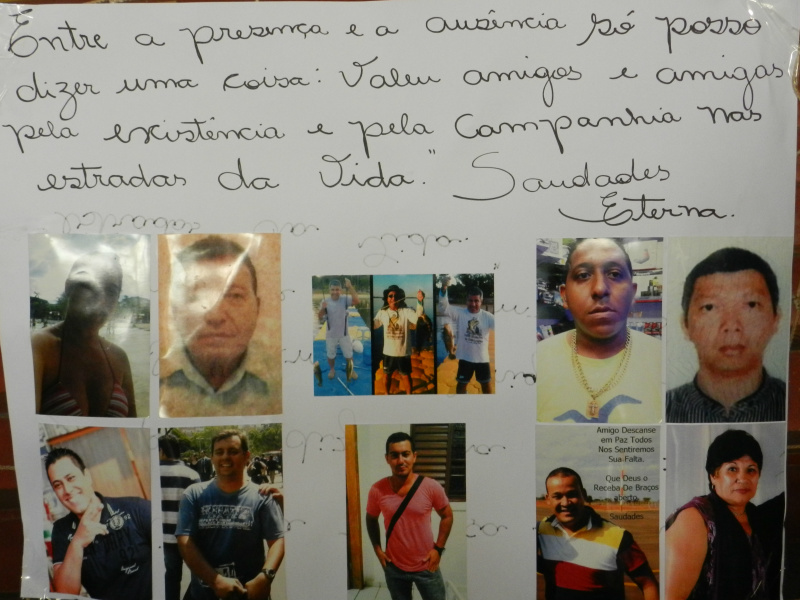 Entre a presença e a ausência só posso
dizer uma coisa: Valeu amigos e amigas
pela existência e pela Companhia nas
estradas da Vida." Saudades
Eterna.
Amigo Descanse
em Paz Todos
Nos Sentiremos
Sua Falta.
Que Deus o
Receba De Braços
aberto
Saudades